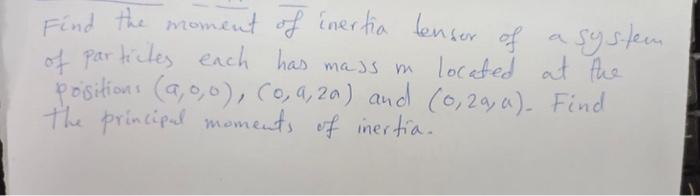 Find the moment of inertia tensor of a system
of particles each has mass m located at the
positions (a,0,0), (0,a,2a) and (0,2a,a). Find
the principal moments of inertia.